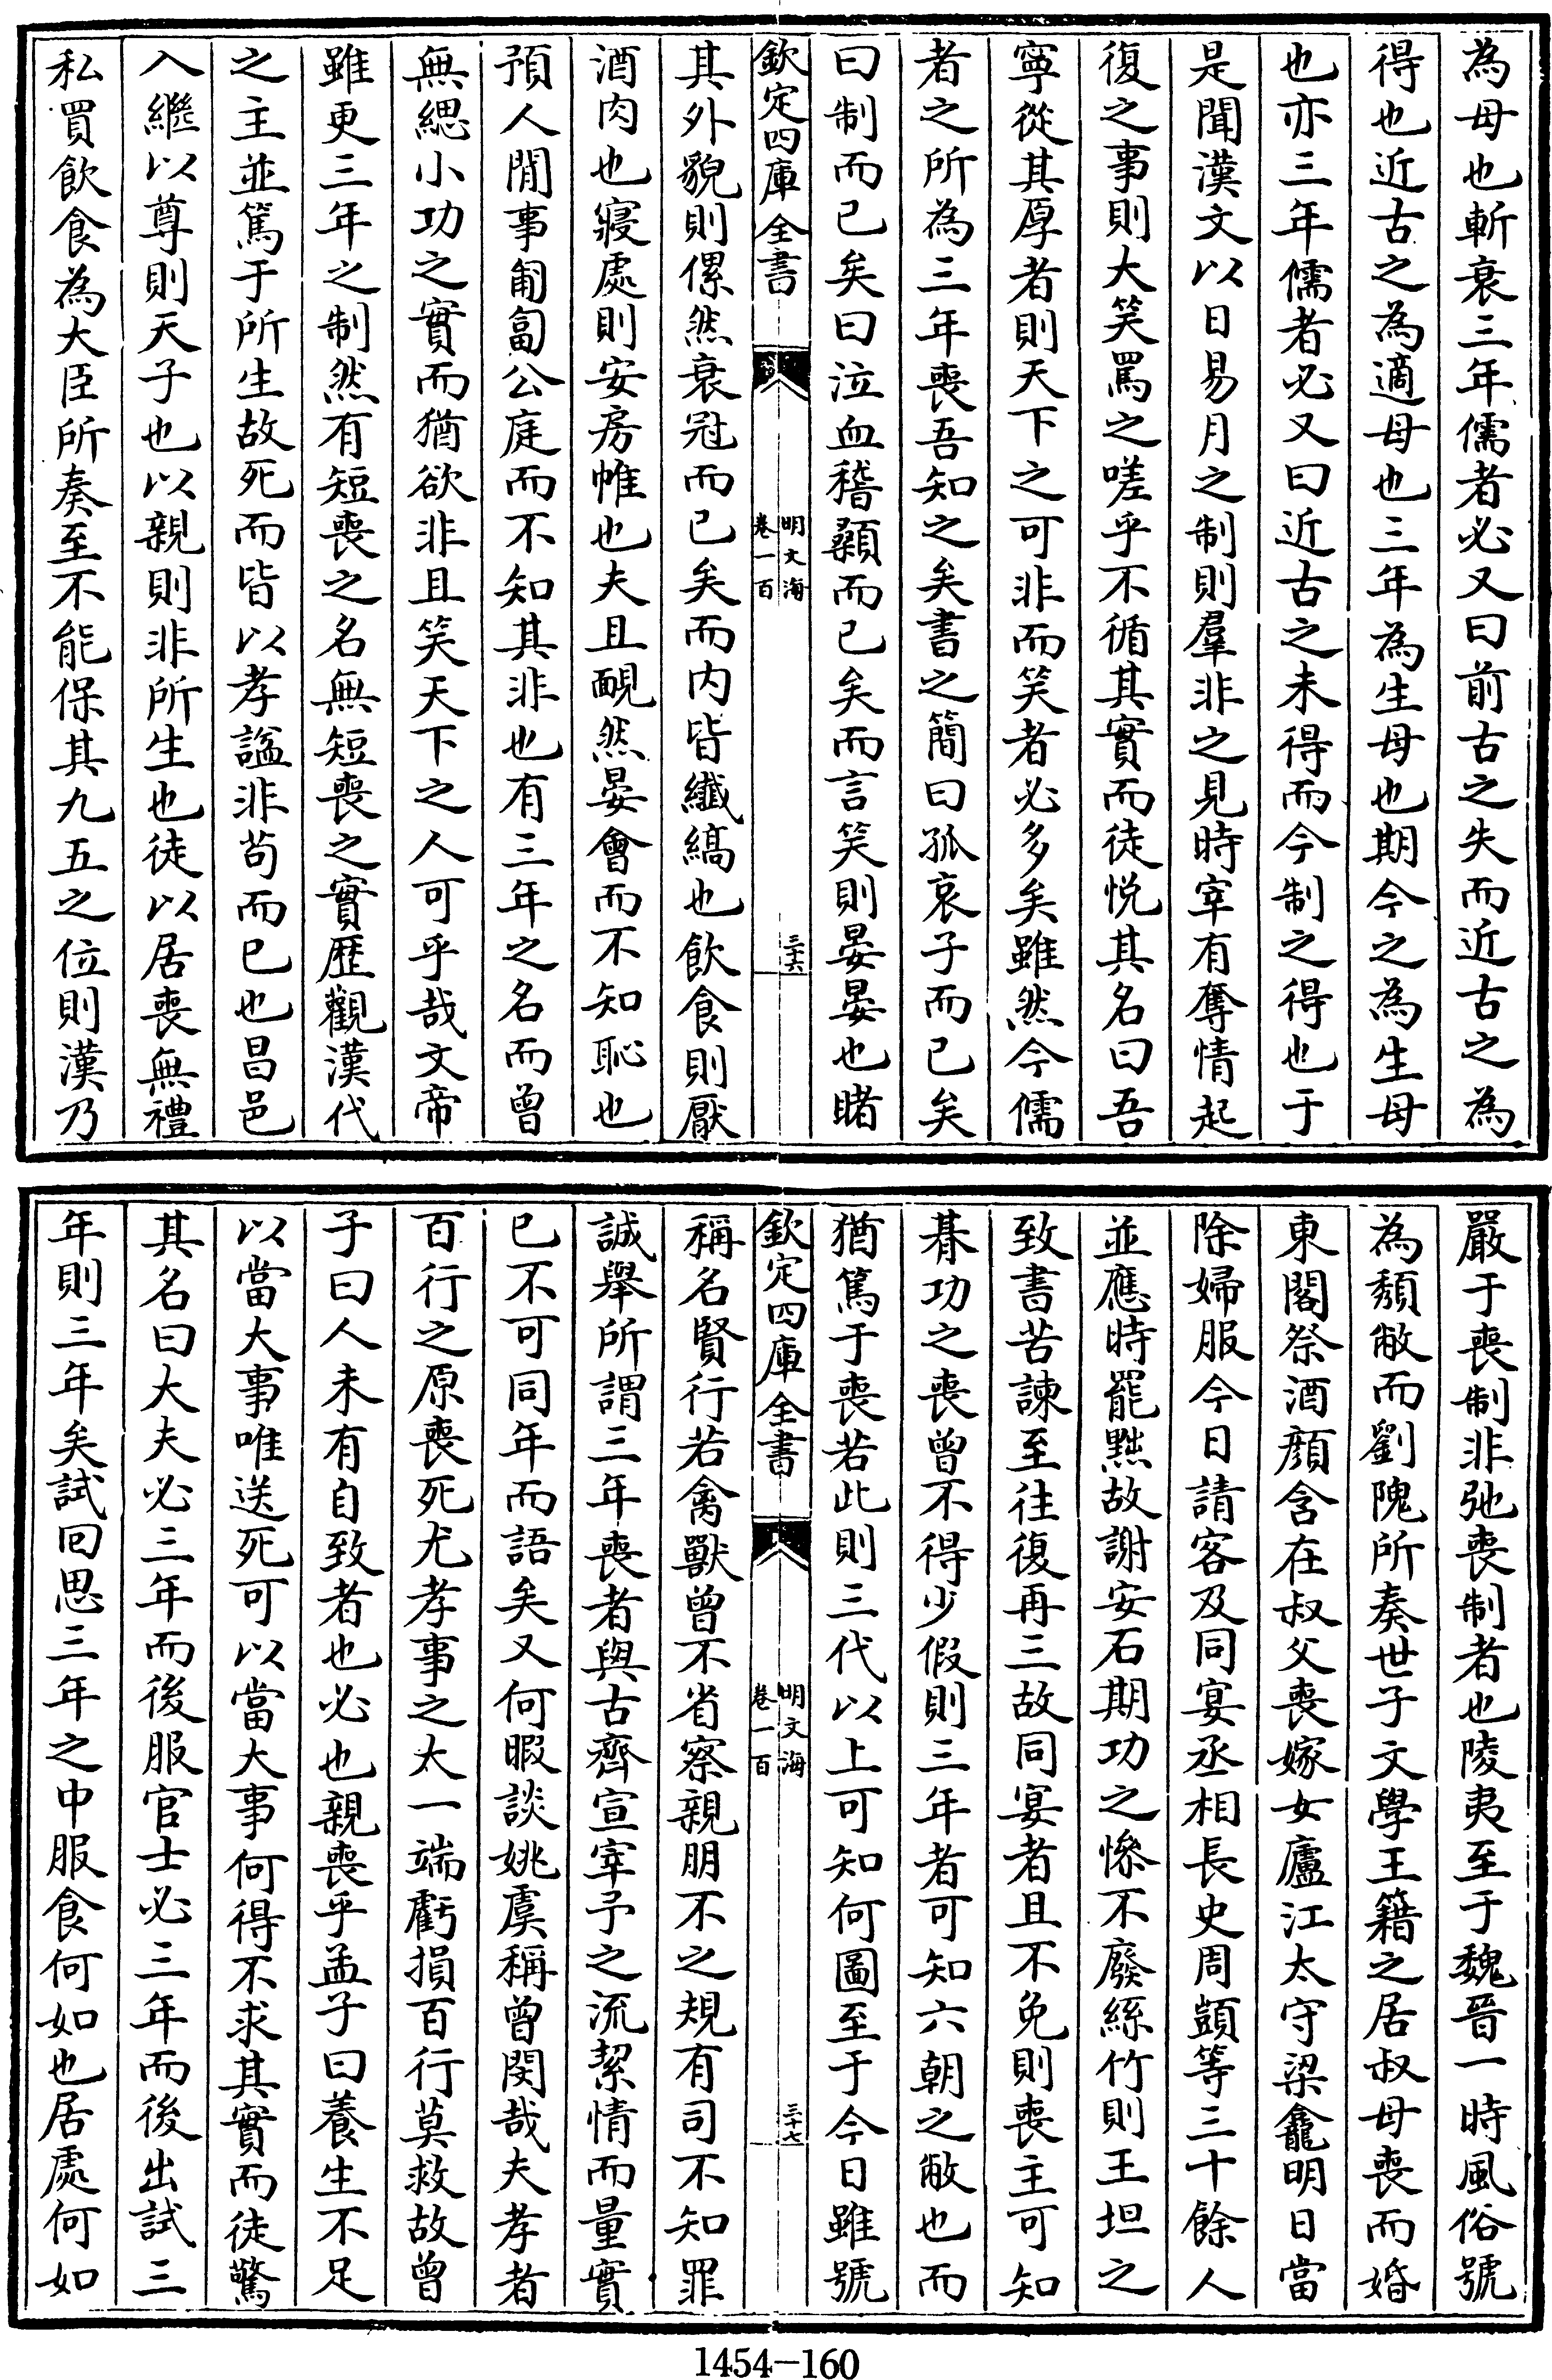 為母也斬衰三年儒者必又曰前古之失而近古之為
得也近古之為適母也三年為生母也期今之為生母
也亦三年儒者必又曰近古之未得而今制之得也于
是聞漢文以日易月之制則羣非之見時宰有奪情起
復之事則大笑罵之嗟乎不循其實而徒悅其名曰吾
寧從其厚者則天下之可非而笑者必多矣雖然今儒
者之所為三年喪吾知之矣書之簡曰孤哀子而已矣
曰制而已矣曰泣血稽顙而已矣而言笑則晏晏也睹
欽定四庫全書
明文海
卷一百
三十六
其外貌則傫然衰冠而已矣而内皆纖縞也飲食則厭
酒肉也寢處則安房帷也夫且靦然晏會而不知恥也
預人閒事匍匐公庭而不知其非也有三年之名而曾
無緦小功之實而猶欲非且笑天下之人可乎哉文帝
雖更三年之制然有短喪之名無短喪之實歷觀漢代
之主並篤于所生故死而皆以孝諡非苟而已也昌邑
入繼以尊則天子也以親則非所生也徒以居喪無禮
私買飲食為大臣所奏至不能保其九五之位則漢乃
嚴于喪制非弛喪制者也陵夷至于魏晉一時風俗號
為頹敝而劉隗所奏世子文學王籍之居叔母喪而婚
東閣祭酒顏含在叔父喪嫁女廬江太守梁龕明日當
除婦服今日請客及同宴丞相長史周顗等三十餘人
並應時罷黜故謝安石期功之慘不廢絲竹則王坦之
致書苦諫至往復再三故同宴者且不免則喪主可知
朞功之喪曾不得少假則三年者可知六朝之敝也而
猶篤于喪若此則三代以上可知何圖至于今日雖號
欽定四庫全書
明文海
卷一百
三十七
稱名賢行若禽獸曾不省察親朋不之規有司不知罪
誠舉所謂三年喪者與古齊宣宰予之流絜情而量實
已不可同年而語矣又何暇談姚虞稱曾閔哉夫孝者
百行之原喪死尤孝事之太一端虧損百行莫救故曾
子曰人未有自致者也必也親喪乎孟子曰養生不足
以當大事唯送死可以當大事何得不求其實而徒驚
其名曰大夫必三年而後服官士必三年而後出試三
年則三年矣試回思三年之中服食何如也居處何如
1454-160